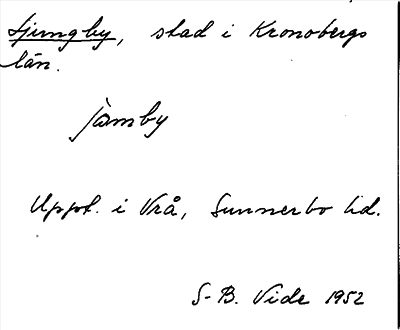 Ljungby, stad i Kronobergs
län.
jàmby
Uppt. i Vrå, Sunnerbo hd.
S-B. Vide 1952